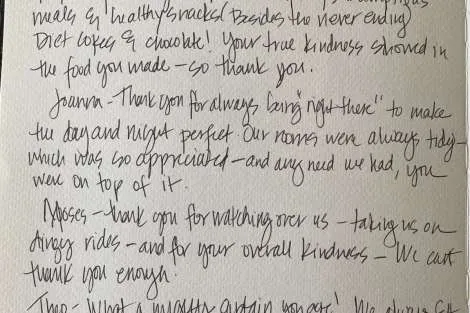 meals & healthy snacks (Besides the never ending)
Diet Cokes & chocolate! Your true kindness showed in
the food you made - so thank you.
Joanna - Thank you for always being "right there" to make
the day and night perfect. Our rooms were always tidy -
which was so appreciated - and any need we had, you
were on top of it.
Moses - thank you for watching over us - taking us on
dingy rides - and for your overall kindness - We cant
thank you enough.
What a captain you are! We always felt